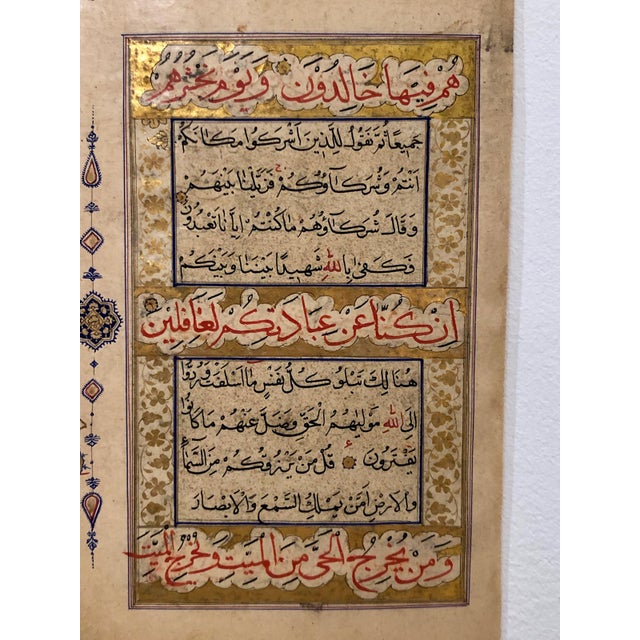 هُمْ فِيهَا خَالِدُونَ وَيَوْمَ نَحْشُرُهُمْ
جَمِيعًا ثُمَّ نَقُولُ لِلَّذِينَ أَشْرَكُوا مَكَانَكُمْ
أَنْتُمْ وَشُرَكَاؤُكُمْ فَزَيَّلْنَا بَيْنَهُمْ
وَقَالَ شُرَكَاؤُهُمْ مَا كُنْتُمْ إِيَّانَا تَعْبُدُونَ
فَكَفَىٰ بِاللَّهِ شَهِيدًا بَيْنَنَا وَبَيْنَكُمْ
إِنْ كُنَّا عَنْ عِبَادَتِكُمْ لَغَافِلِينَ
هُنَالِكَ تَبْلُو كُلُّ نَفْسٍ مَا أَسْلَفَتْ وَرُدُّوا
إِلَى اللَّهِ مَوْلَيٰهُمُ الْحَقِّ وَضَلَّ عَنْهُمْ مَا كَانُوا
يَفْتَرُونَ قُلْ مَنْ يَرْزُقُكُمْ مِنَ السَّمَاءِ
وَالْأَرْضِ أَمَّنْ يَمْلِكُ السَّمْعَ وَالْأَبْصَارَ
وَمَنْ يُخْرِجُ الْحَيَّ مِنَ الْمَيِّتِ وَيُخْرِجُ الْمَيِّتَ